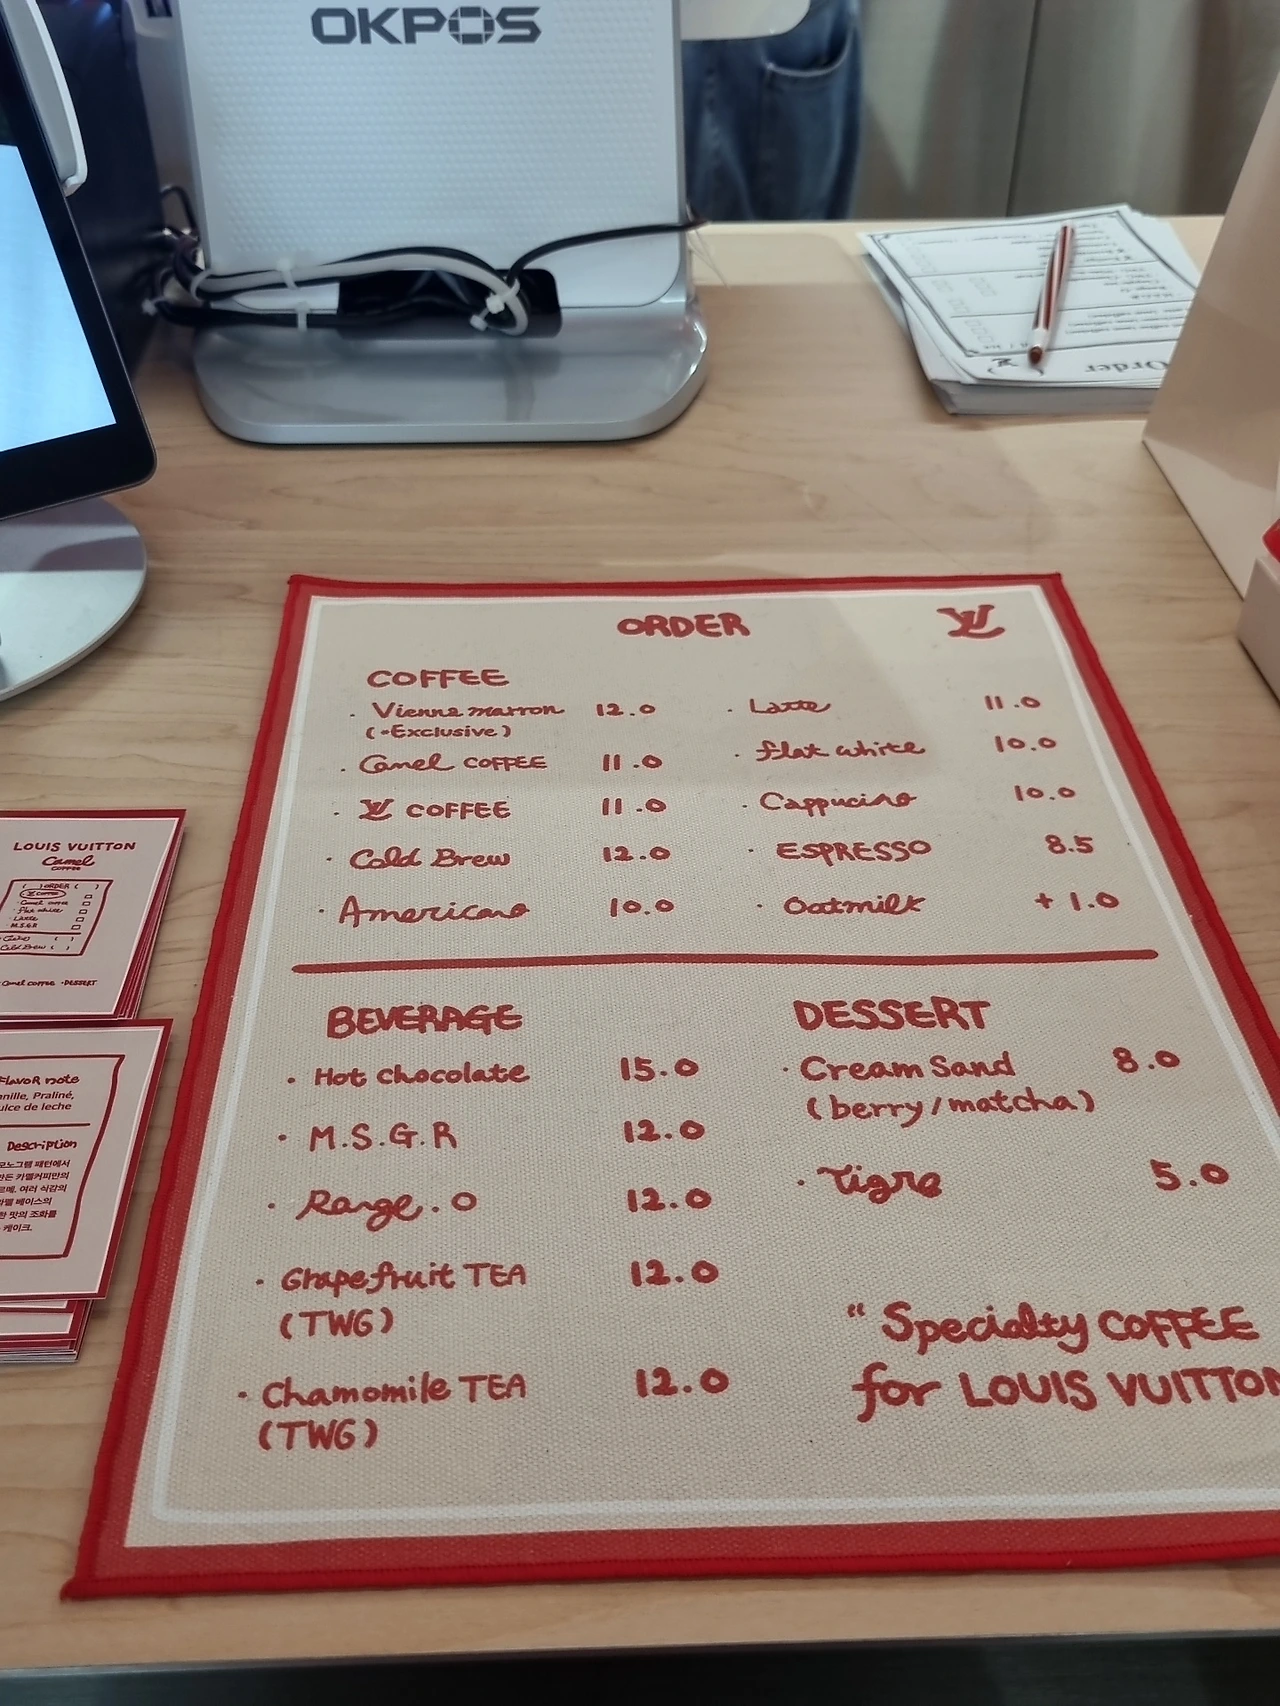 OKPOS
Order
ORDER
COFFEE
· Vienna marron 12.0
(·Exclusive)
· Camel COFFEE 11.0
· LV COFFEE 11.0
· Cold Brew 12.0
· Americano 10.0
· Latte 11.0
· flat white 10.0
· Cappucino 10.0
· ESPRESSO 8.5
· Oatmilk + 1.0
BEVERAGE
· Hot chocolate 15.0
· M.S.G.R 12.0
· Range.O 12.0
· Grapefruit TEA 12.0
(TWG)
· Chamomile TEA 12.0
(TWG)
DESSERT
· Cream Sand 8.0
(berry/matcha)
· Tigre 5.0
" Specialty COFFEE
for LOUIS VUITTON
LOUIS VUITTON
Camel
COFFEE
( ) ORDER ( )
LV COFFEE
· Camel coffee
· flat white
· Latte
· M.S.G.R
Cold Brew ( )
Camel coffee · DESSERT
Flavor note
nille, Praliné,
ulce de leche
Description
모노그램 패턴에서
만든 카멜커피만의
르메. 여러 식감의
라멜 베이스의
한 맛의 조화를
케이크.